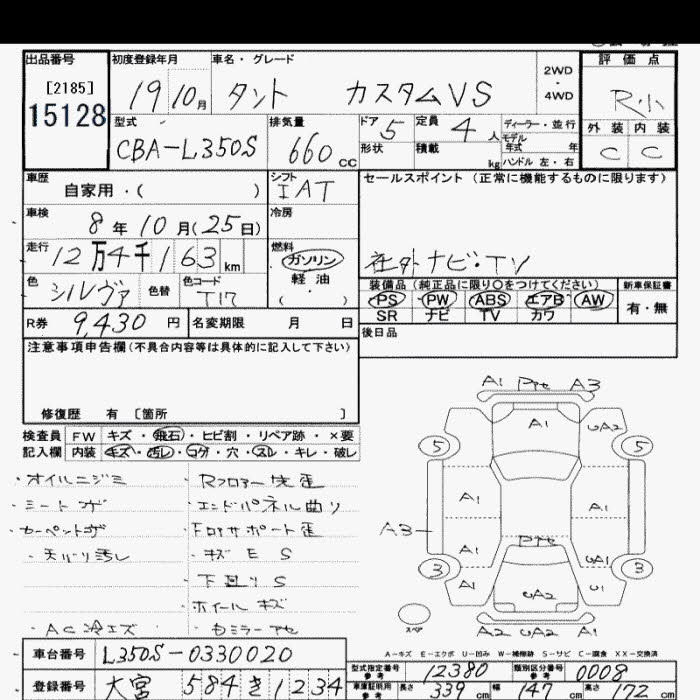 出品番号 初度登録年月 車名・グレード 評価点
[2185] 15128
19 10月 タント カスタムVS 2WD ・ 4WD R小
型式 排気量 ドア 5 定員 4 人 ディーラー・並行 外装 内装
CBA-L350S 660 CC 形状 積載 kg モデル年式 年 ハンドル 左・右 C C
車歴 自家用・( ) シフト IAT セールスポイント (正常に機能するものに限ります)
車検 8年10月(25日) 冷房
走行 12万4千163 km 燃料 ガソリン 軽油 ( ) 社外ナビ・TV
色 シルヴァ 色替 色コード T17
装備品 (純正品に限り〇をつけてください) 新車保証書
PS PW ABS エアB AW 有・無
SR ナビ TV カワ
R券 9,430 円 名変期限 月 日 後日品
注意事項申告欄(不具合内容等は具体的に記入して下さい)
修復歴 有 [箇所 ]
検査員 FW キズ・飛石・ヒビ割・リペア跡・×要
記入欄 内装 キズ・汚レ・コゲ・穴・スレ・キレ・破レ
・オイルニジミ ・Rフロアー先歪
・シートコゲ ・エンドパネル曲り
・カーペットコゲ ・Fロアサポート歪
・天バリ汚レ ・キズ E S
・下廻り S
・ホイールキズ
・AC冷エズ
A1 A3
A1 UA2
5 5
A1 A1
A3
A1 UA1
3 3
A1 UA2 U1
スペア A2 UA2 A1
A-キズ E-エクボ U-凹み W-補修跡 S-サビ C-腐食 XX-交換済
車台番号 L350S-0330020
型式指定番号 参考 12380 類別区分番号 参考 0008
登録番号 大宮 584 き 1234
車庫証明用 参考 長さ 339 cm 幅 147 cm 高さ 172 cm